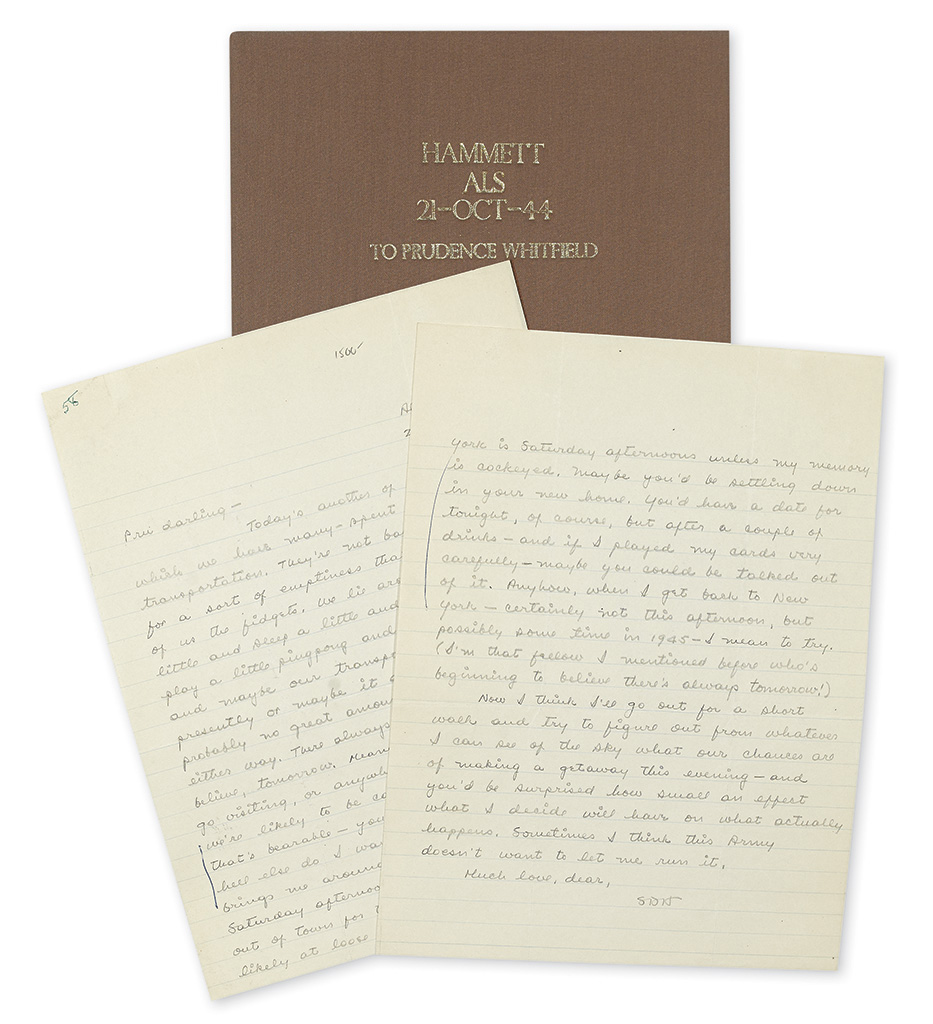 HAMMETT
ALS
21-OCT-44
TO PRUDENCE WHITFIELD
58
1500-
Pru darling—
Today's another of
which we have many—spent
transportation. They're not ba
for a sort of emptiness tha
of us the fidgets. We lie aro
little and sleep a little and
play a little pingpong and
and maybe our transpo
presently or maybe it
probably no great amou
either way. There always
believe, tomorrow. Mean
go visiting, or anywh
we're likely to be
that's bearable—you
hell else do I wa
brings me around
Saturday afternoo
out of town for
likely at loose
York is Saturday afternoons unless my memory
is cockeyed. Maybe you'd be settling down
in your new home. You'd have a date for
tonight, of course, but after a couple of
drinks—and if I played my cards very
carefully—maybe you could be talked out
of it. Anyhow, when I get back to New
York—certainly not this afternoon, but
possibly some time in 1945—I mean to try.
(I'm that fellow I mentioned before who's
beginning to believe there's always tomorrow!)
Now I think I'll go out for a short
walk and try to figure out from whatever
I can see of the sky what our chances are
of making a getaway this evening—and
you'd be surprised how small an effect
what I decide will have on what actually
happens. Sometimes I think this Army
doesn't want to let me run it.
Much love, dear,
SDH